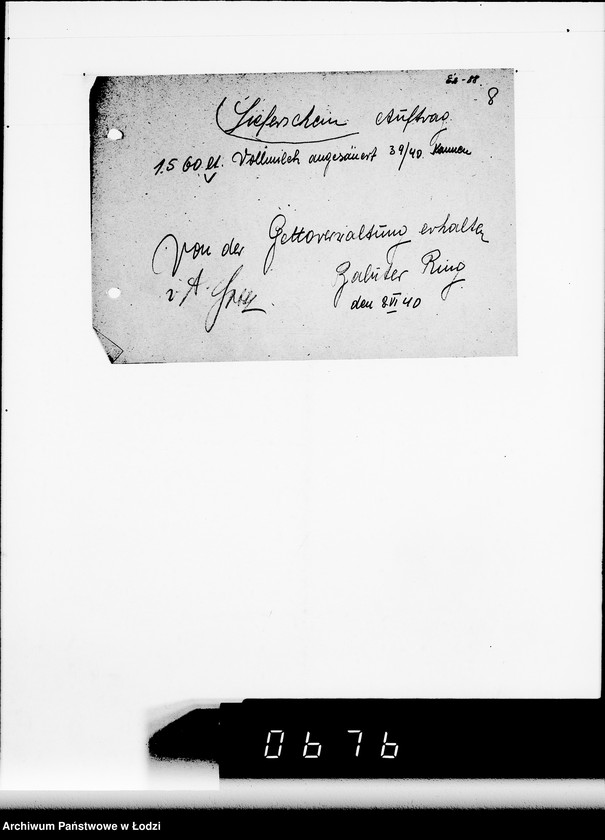 Es-88
8
Lieferschein Auftrag
1560 lt. Vollmilch angesäuert 39/40 Kannen
Von der Gettoverwaltung erhalten
i. A. Baluter Ring
den 8 VI 40
0676
Archiwum Państwowe w Łodzi